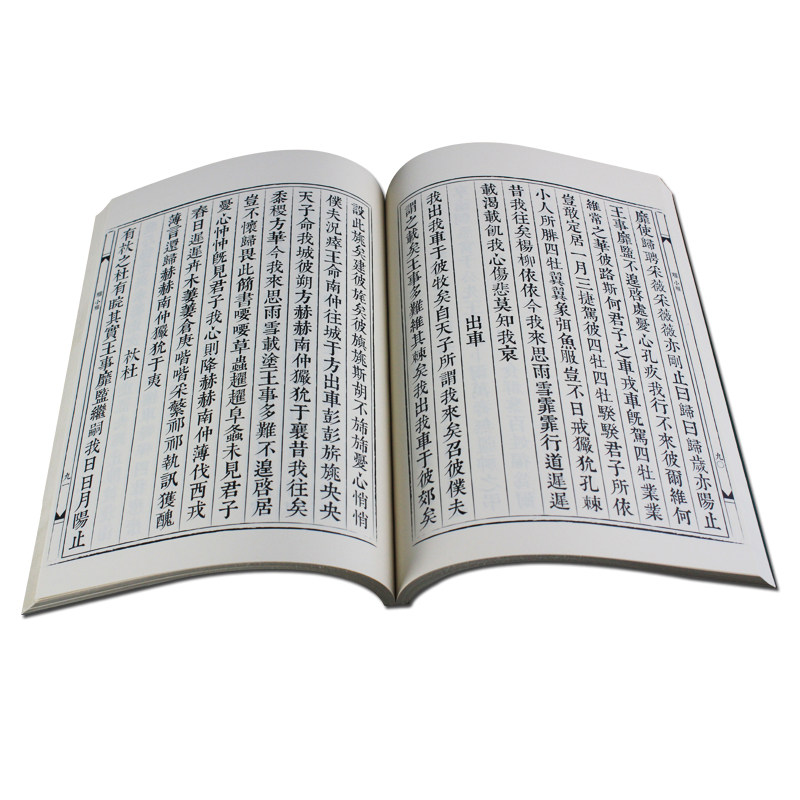 九〇
靡使歸聘采薇采薇薇亦剛止曰歸曰歸歲亦陽止
王事靡盬不遑啓處憂心孔疚我行不來彼爾維何
維常之華彼路斯何君子之車戎車旣駕四牡業業
豈敢定居一月三捷駕彼四牡四牡騤騤君子所依
小人所腓四牡翼翼象弭魚服豈不日戒玁狁孔棘
昔我往矣楊柳依依今我來思雨雪霏霏行道遲遲
載渴載飢我心傷悲莫知我哀
出車
我出我車于彼牧矣自天子所謂我來矣召彼僕夫
謂之載矣王事多難維其棘矣我出我車于彼郊矣
設此旐矣建彼旄矣彼旟旐斯胡不旆旆憂心悄悄
僕夫況瘁王命南仲往城于方出車彭彭旂旐央央
天子命我城彼朔方赫赫南仲玁狁于襄昔我往矣
黍稷方華今我來思雨雪載塗王事多難不遑啓居
豈不懷歸畏此簡書喓喓草蟲趯趯阜螽未見君子
憂心忡忡旣見君子我心則降赫赫南仲薄伐西戎
春日遲遲卉木萋萋倉庚喈喈采蘩祁祁執訊獲醜
薄言還歸赫赫南仲玁狁于夷
杕杜
有杕之杜有睆其實王事靡盬繼嗣我日日月陽止